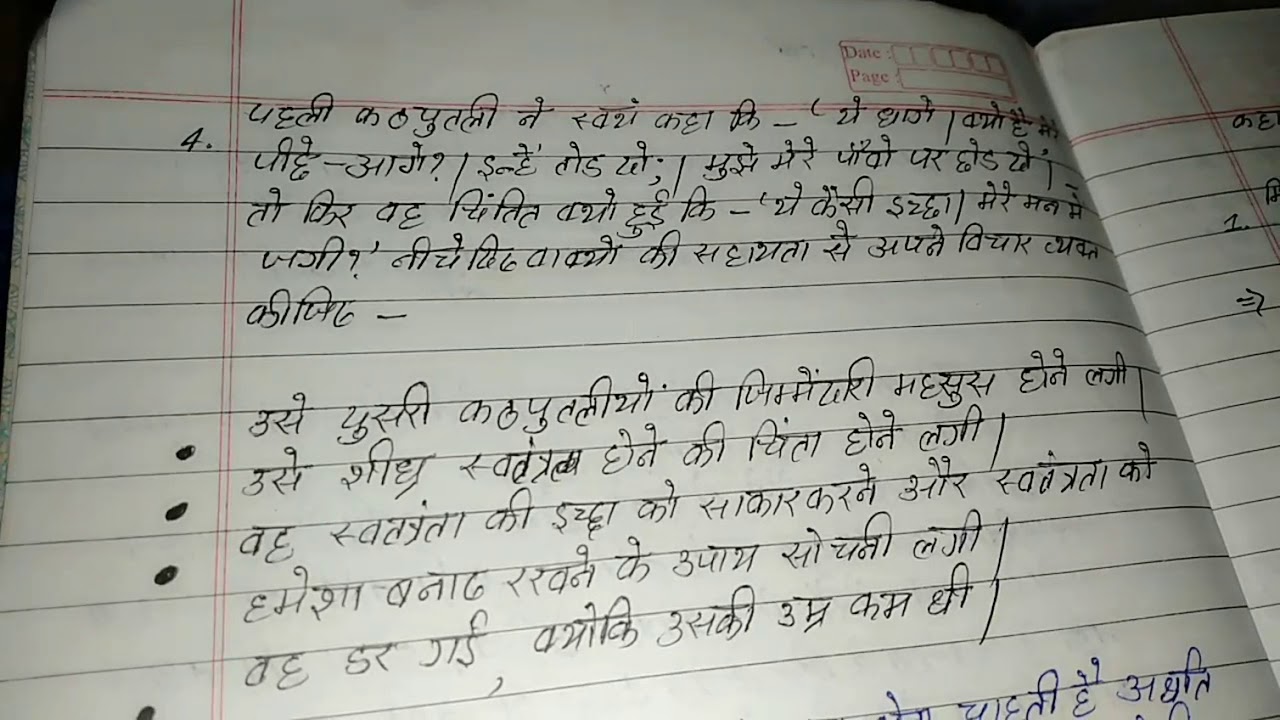 Date :
Page :
4. पहली कठपुतली ने स्वयं कहा कि – ' ये धागे / क्यों है मेरे
पीछे – आगे? / इन्हें तोड दो; / मुझे मेरे पाँवो पर छोड दो। –
तो फिर वह चिंतित क्यो हुई कि – 'ये कैसी इच्छा / मेरे मन मे
जगी?' नीचे दिए वाक्यों की सहायता से अपने विचार व्यक्त
कीजिए –
उसे दुसरी कठपुतलीयों की जिम्मेंदारी महसुस होने लगी।
• उसे शीघ्र स्वतंत्र होने की चिंता होने लगी।
• वह स्वतत्रंता की इच्छा को साकार करने और स्वतंत्रता को
• हमेशा बनाए रखने के उपाय सोचनी लगी।
वह डर गई, क्योकि उसकी उम्र कम थी।
चाहती है अर्थात
1.
⇒